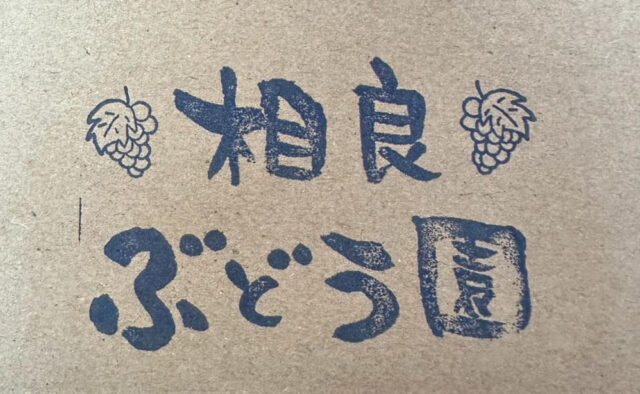 相良
ぶどう園